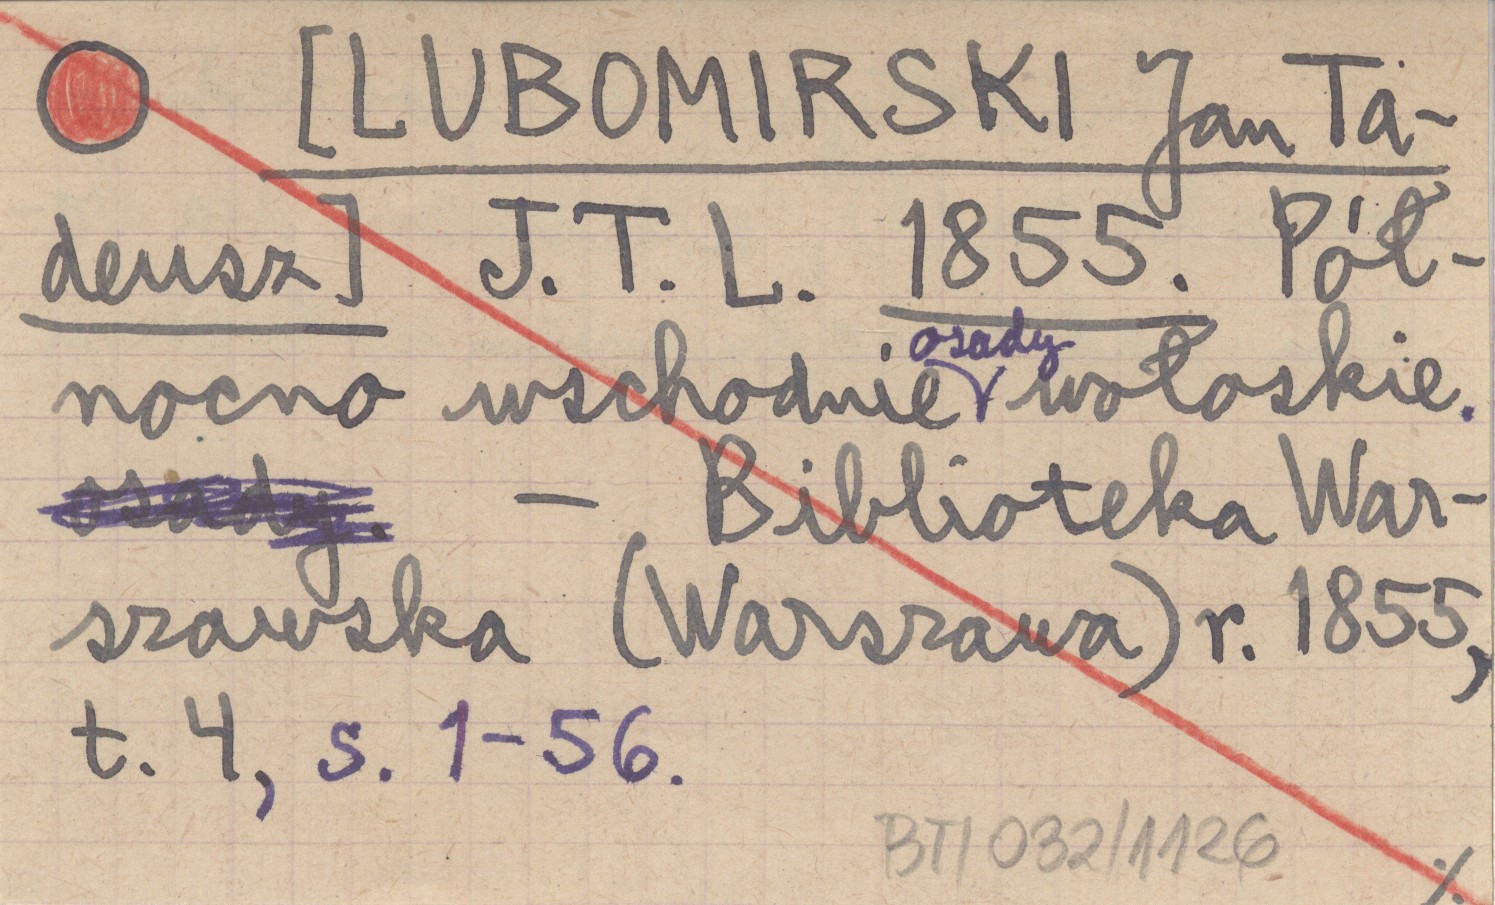 [LUBOMIRSKI Jan Ta-
deusz] J.T.L. 1855. Pół-
nocno wschodnie osady wołoskie.
osady. — Biblioteka War-
szawska (Warszawa) r. 1855,
t. 4, s. 1-56.
BTI 032/1126
·/.